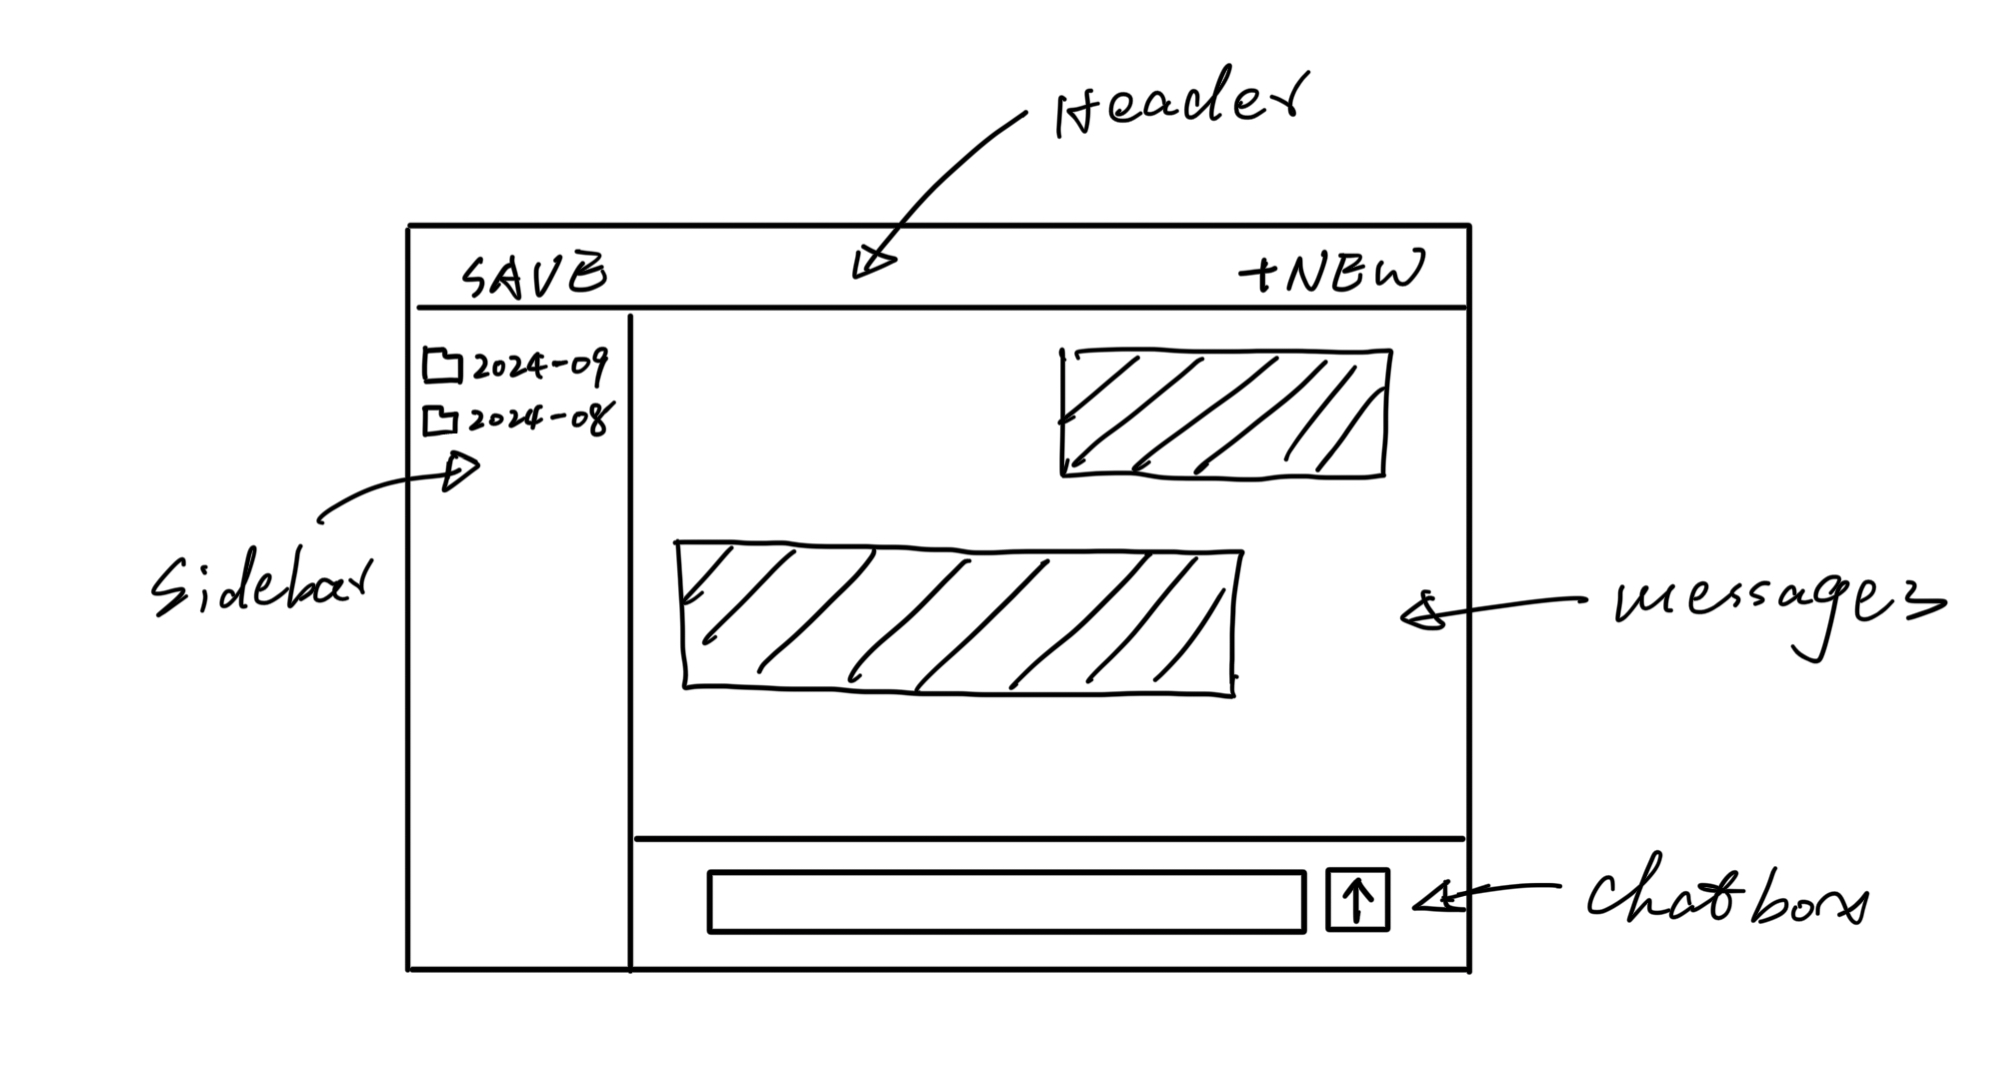 Header
SAVE
+NEW
2024-09
2024-08
Sidebar
messages
Chatbox